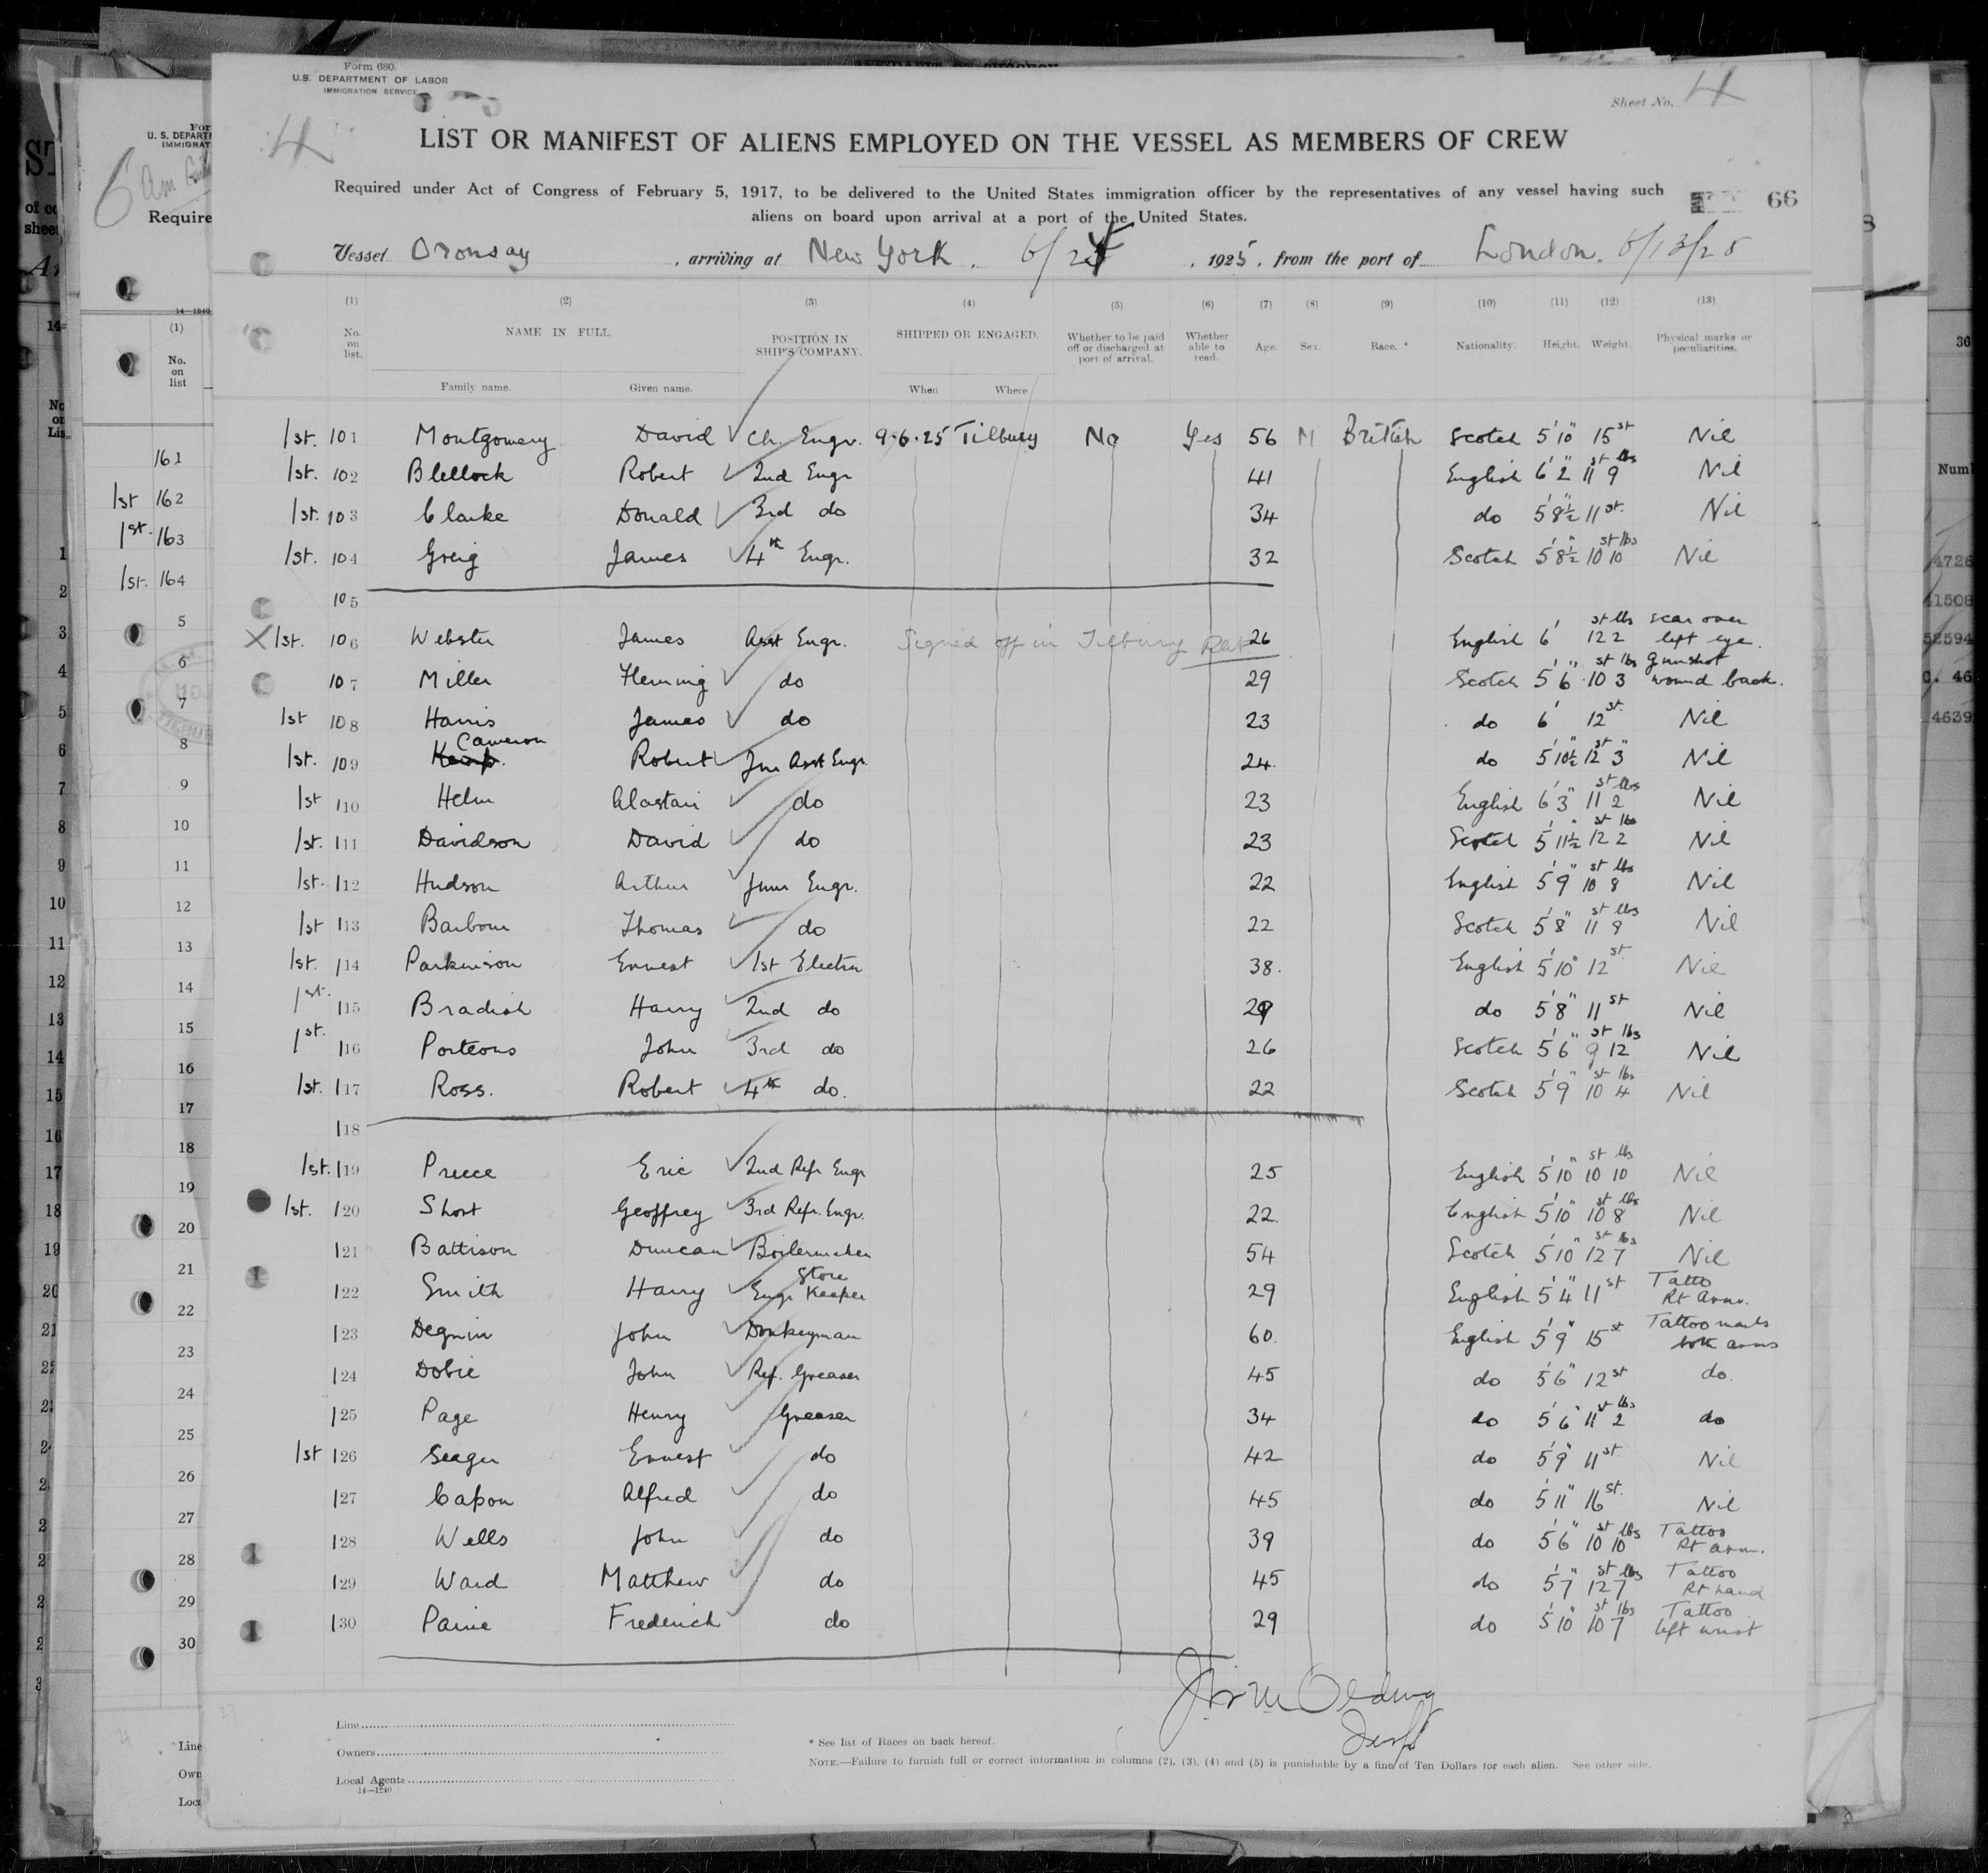 Form 680.
U.S. DEPARTMENT OF LABOR
IMMIGRATION SERVICE
Sheet No. 4
4
LIST OR MANIFEST OF ALIENS EMPLOYED ON THE VESSEL AS MEMBERS OF CREW
Required under Act of Congress of February 5, 1917, to be delivered to the United States immigration officer by the representatives of any vessel having such
aliens on board upon arrival at a port of the United States.
66
Vessel Oronsay, arriving at New York. 6/24, 1925, from the port of London. 6/13/25
(1) (2) (3) (4) (5) (6) (7) (8) (9) (10) (11) (12) (13)
No. on list. NAME IN FULL. POSITION IN SHIP'S COMPANY. SHIPPED OR ENGAGED. Whether to be paid off or discharged at port of arrival. Whether able to read. Age. Sex. Race. * Nationality. Height. Weight. Physical marks or peculiarities.
Family name. Given name. When Where
1st. 101 Montgomery David Ch. Engr. 9.6.25 Tilbury No Yes 56 M British Scotch 5'10" 15st Nil
1st. 102 Blellock Robert 2nd Engr 41 English 6'2" 11st 9lbs Nil
1st. 103 Clarke Donald 3rd do 34 do 5'8½" 11st. Nil
1st. 104 Greig James 4th Engr. 32 Scotch 5'8½" 10st 10lbs Nil
105
X 1st. 106 Webster James Asst Engr. Signed off in Tilbury 26 English 6' 12st 2lbs scar over left eye.
107 Miller Fleming do 29 Scotch 5'6" 10st 3lbs gunshot wound back.
1st 108 Harris James do 23 do 6' 12st. Nil
1st. 109 Kemp. Cameron Robert Jnr Asst Engr. 24. do 5'10½" 12st 3" Nil
1st 110 Helm Alastair do 23 English 6'3" 11st 2lbs Nil
1st. 111 Davidson David do 23 Scotch 5'11½" 12st 2lbs Nil
1st. 112 Hudson Arthur Junr Engr. 22 English 5'9" 10st 8lbs Nil
1st 113 Barbour Thomas do 22 Scotch 5'8" 11st 9lbs Nil
1st. 114 Parkinson Ernest 1st Electrn 38. English 5'10" 12st. Nil
1st. 115 Bradish Harry 2nd do 29 do 5'8" 11st Nil
1st. 116 Porteous John 3rd do 26 Scotch 5'6" 9st 12lbs Nil
1st. 117 Ross. Robert 4th do. 22 Scotch 5'9" 10st 4lbs Nil
118
1st. 119 Preece Eric 2nd Refr Engr 25 English 5'10" 10st 10lbs Nil
1st. 120 Short Geoffrey 3rd Refr. Engr. 22. English 5'10" 10st 8lbs Nil
121 Battison Duncan Boilermaker 54 Scotch 5'10" 12st 7lbs Nil
122 Smith Harry Engr Store Keeper 29 English 5'4" 11st Tatto Rt arm.
123 Degnin John Donkeyman 60. English 5'9" 15st. Tattoo marks both arms
124 Dobie John Ref. Greaser 45 do 5'6" 12st do.
125 Page Henry Greaser 34 do 5'6" 11st 2lbs do
1st 126 Seager Ernest do 42 do 5'9" 11st. Nil
127 Capon Alfred do 45 do 5'11" 16st. Nil
128 Wells John do 39 do 5'6" 10st 10lbs Tattoo Rt arm.
129 Ward Matthew do 45 do 5'7" 12st 7lbs Tattoo Rt hand
130 Paine Frederick do 29 do 5'10" 10st 7lbs Tattoo left wrist
Line
Owners
Local Agents
14—1240
* See list of Races on back hereof.
NOTE.—Failure to furnish full or correct information in columns (2), (3), (4) and (5) is punishable by a fine of Ten Dollars for each alien. See other side.